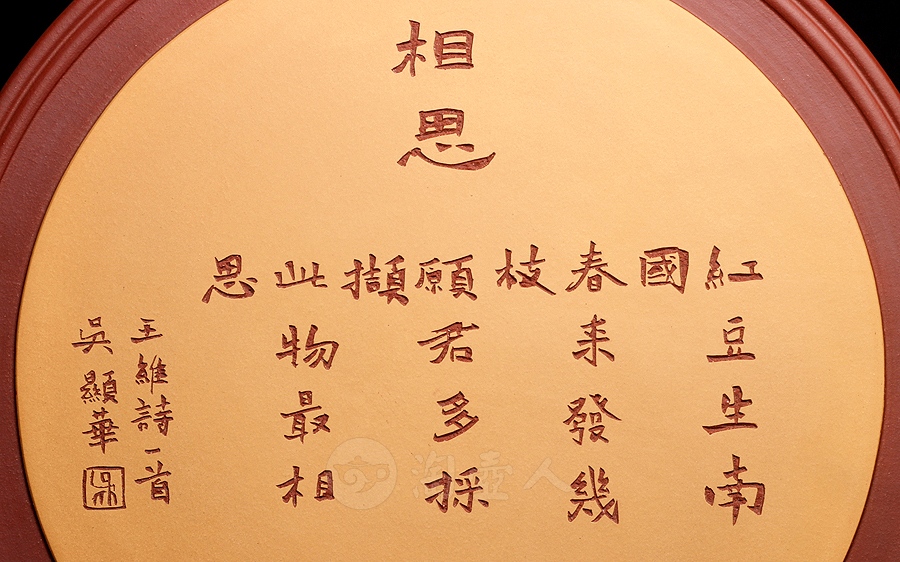 相思
紅豆生南
國
春来發幾
枝
願君多採
擷
此物最相
思
王維詩一首
吳顯華
淘壺人